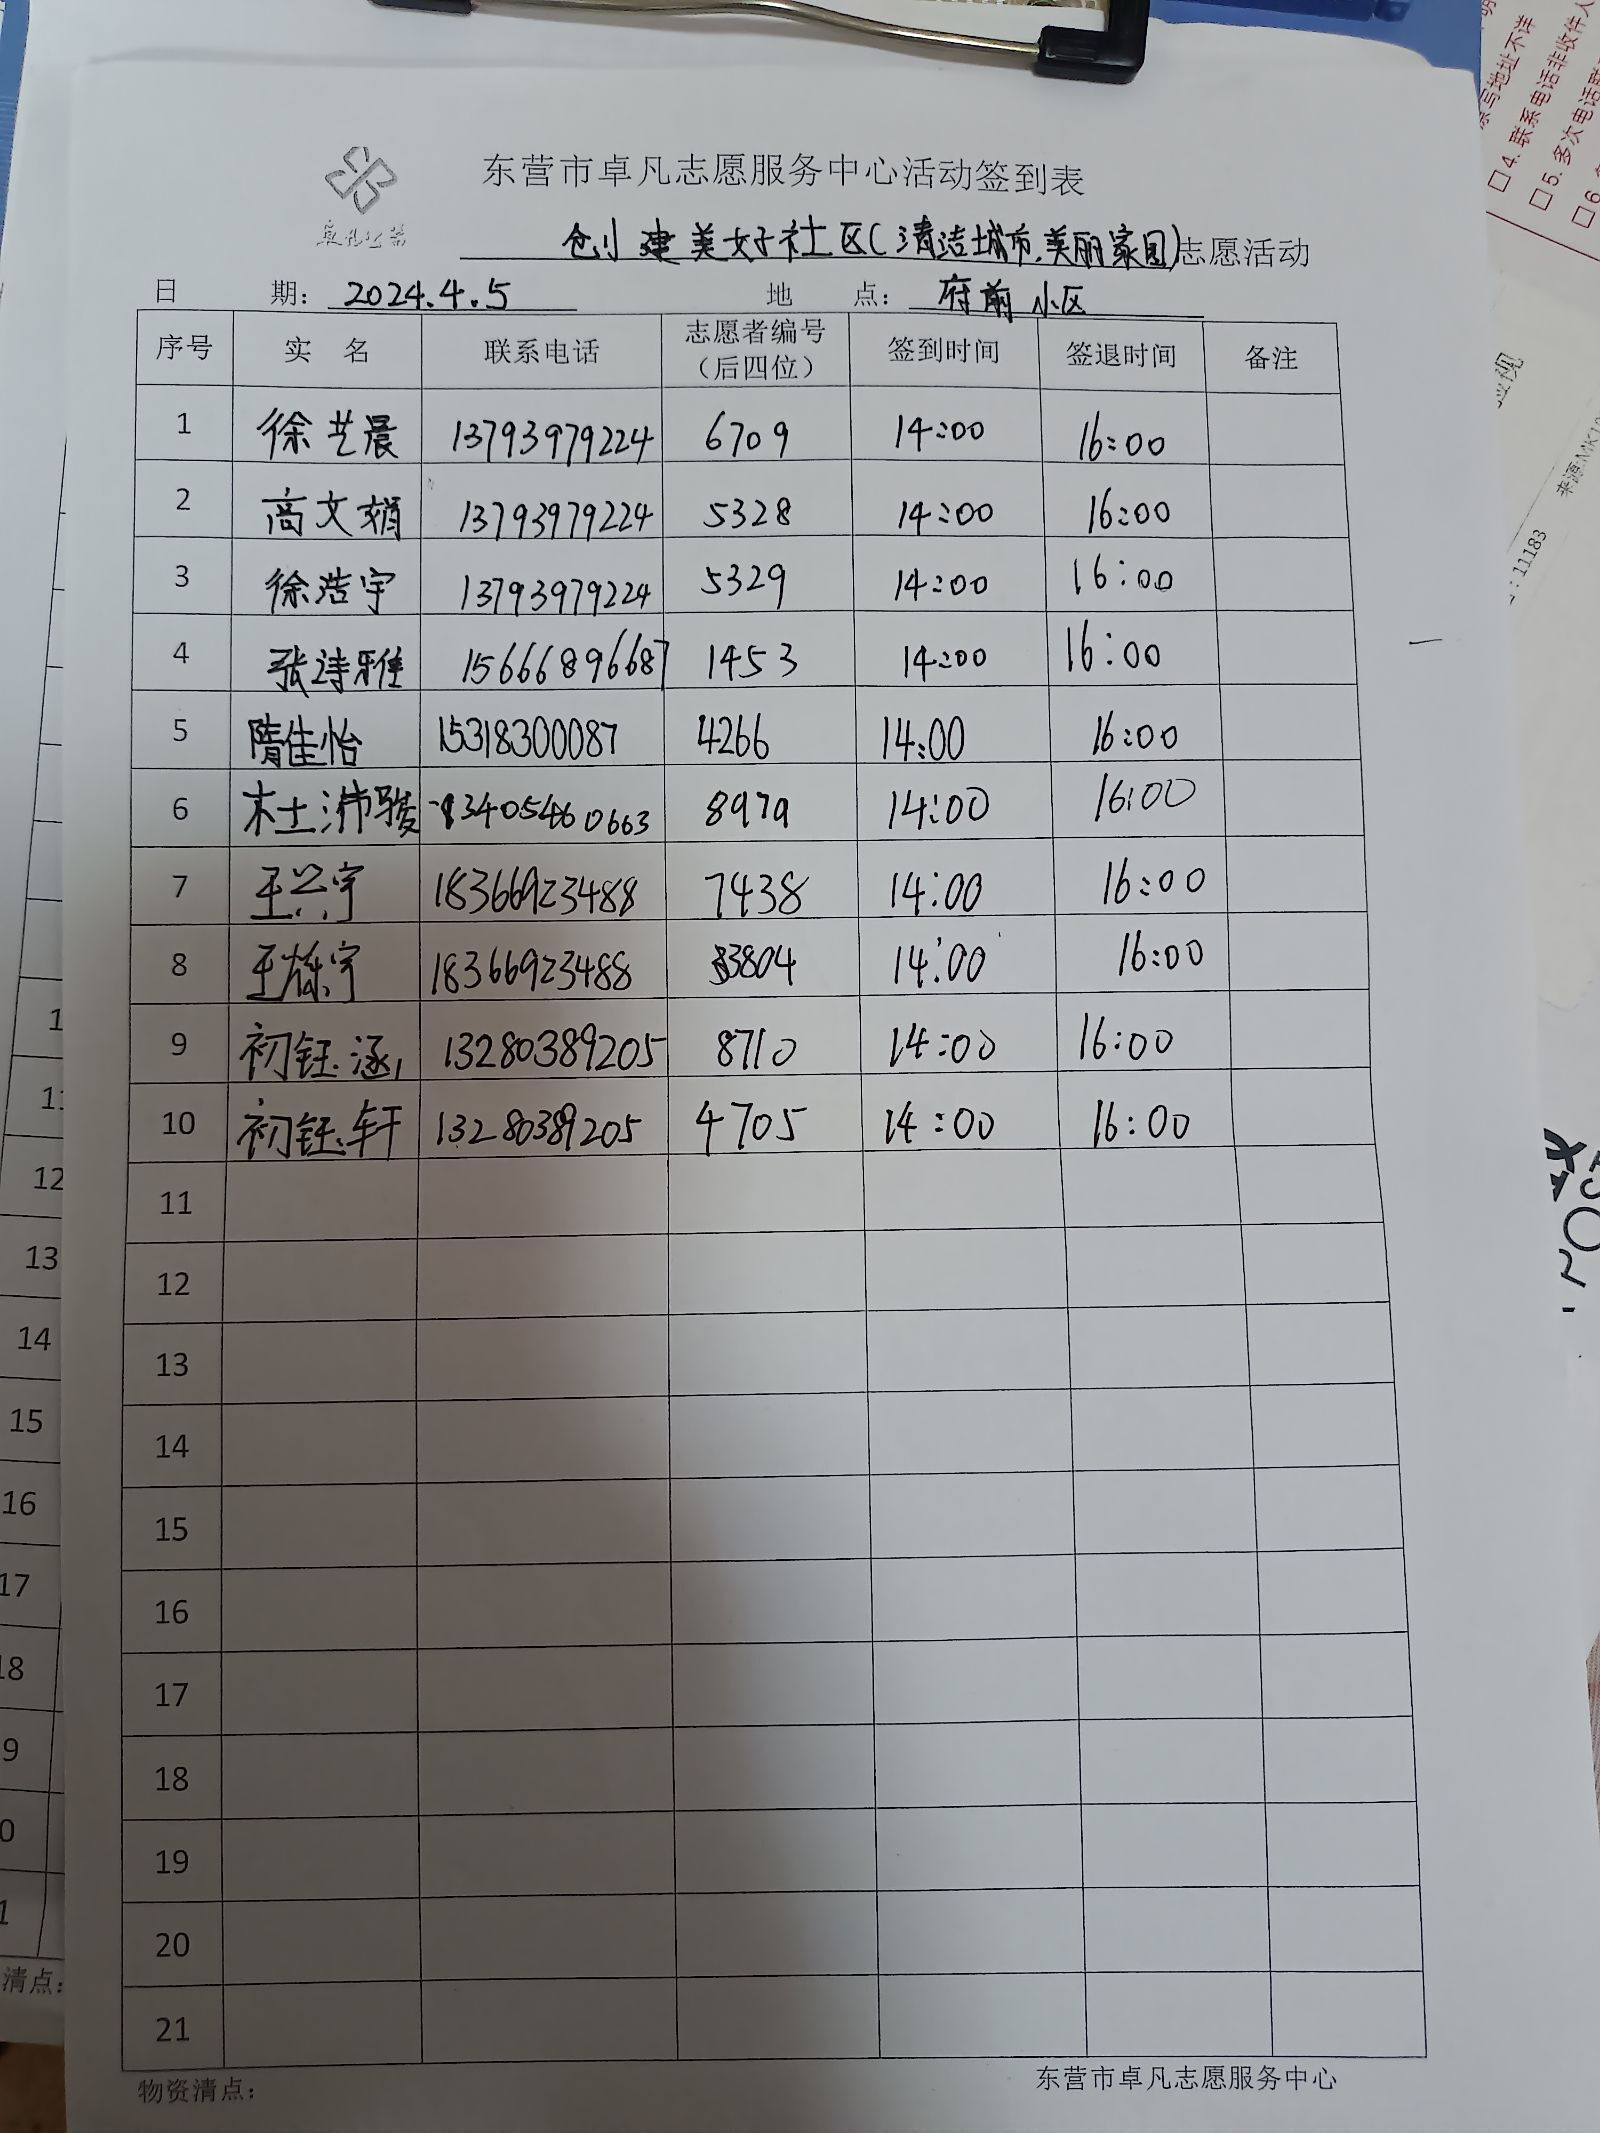 东营市卓凡志愿服务中心活动签到表
卓凡公益
创建美好社区(清洁城市,美丽家园)志愿活动
日 期: 2024.4.5 地 点: 府前小区
序号 实 名 联系电话 志愿者编号(后四位) 签到时间 签退时间 备注
1 徐艺晨 13793979224 6709 14:00 16:00
2 高文娟 13793979224 5328 14:00 16:00
3 徐浩宇 13793979224 5329 14:00 16:00
4 张诗雅 15666896687 1453 14:00 16:00
5 隋佳怡 15318300087 4266 14:00 16:00
6 杜沛骏 13405460663 8979 14:00 16:00
7 王兴宇 18366923488 7438 14:00 16:00
8 王栋宇 18366923488 3804 14:00 16:00
9 初钰涵 13280389205 8710 14:00 16:00
10 初钰轩 13280389205 4705 14:00 16:00
11
12
13
14
15
16
17
18
19
20
21
物资清点: 东营市卓凡志愿服务中心
10
11
12
13
14
15
16
17
18
清点:
写地址不详
□4. 联系电话非收件人
□5. 多次电话联
□6.
: 11183